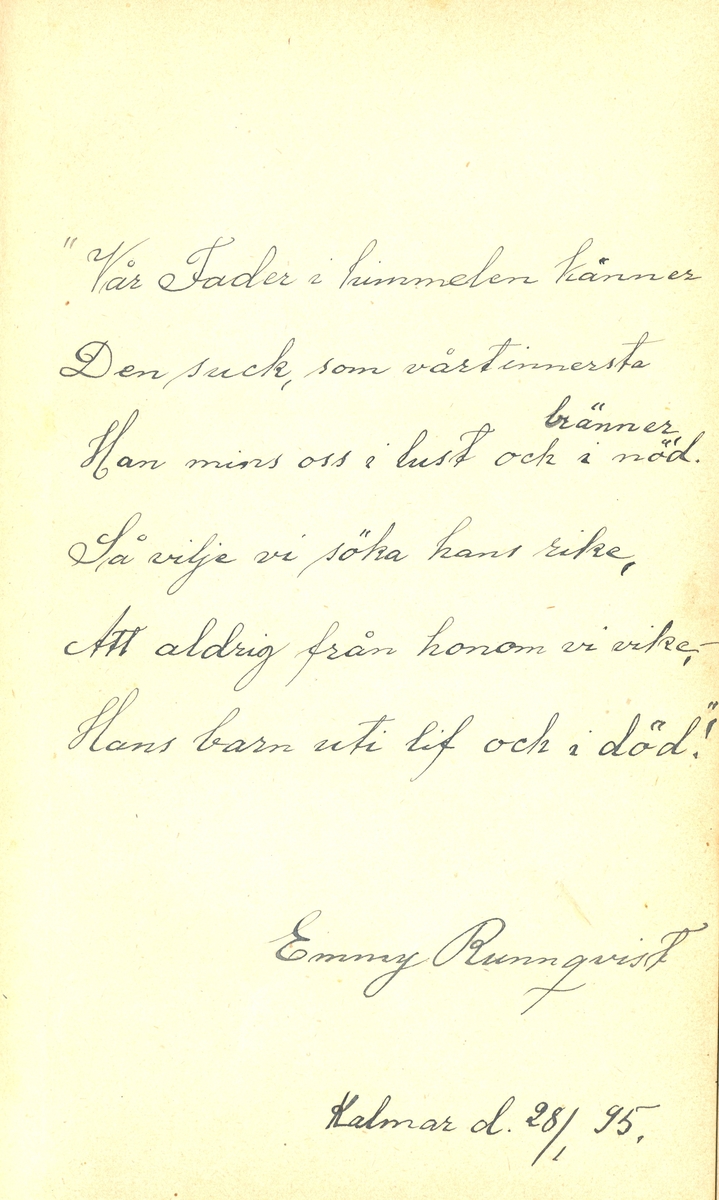 "Vår Fader i himmelen känner
Den suck, som vårt innersta
bränner
Han mins oss i lust och i nöd.
Så vilje vi söka hans rike,
Att aldrig från honom vi vike,–
Hans barn uti lif och i död!"
Emmy Runnqvist
Kalmar d. 28/1 95.